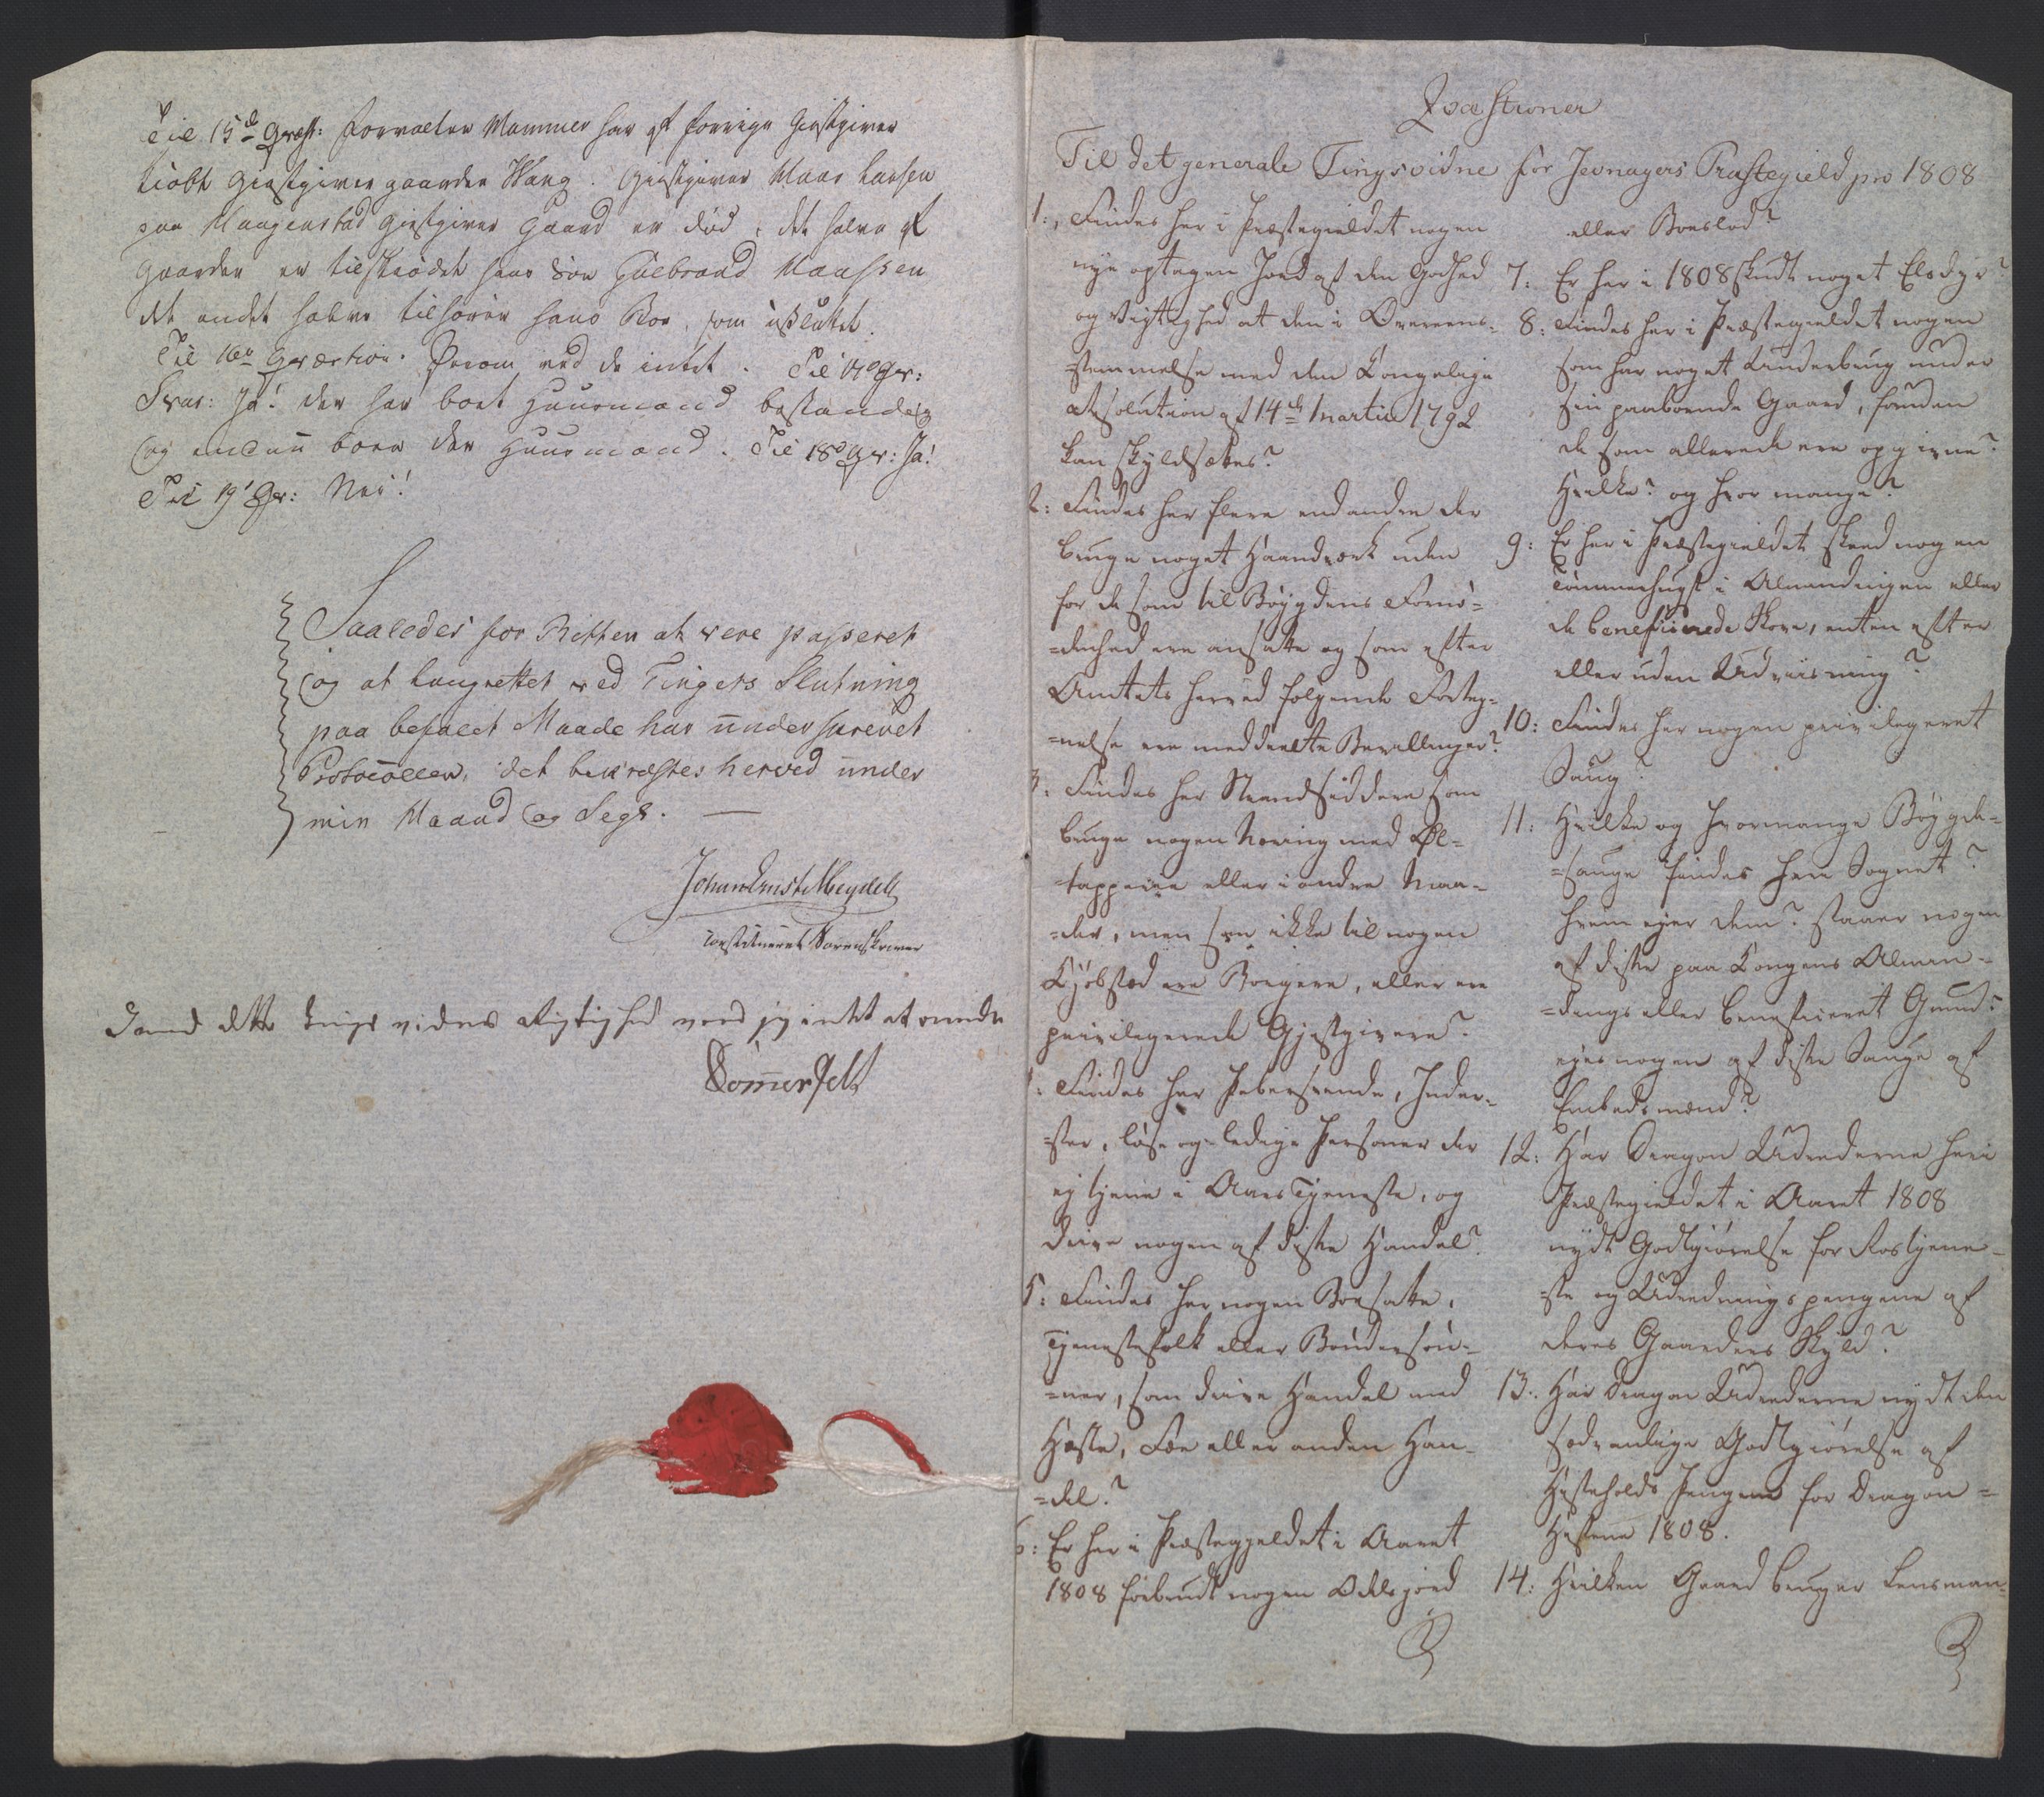 Til 15de Qvæst: Forvalter Mammer har af forrige Giestgiver
kiøbt Giestgiver gaarden Wang. Giestgiver Maas Larsen
paa Haagenstad giestgiver Gaard er død, det halve af
Gaarden er tilskiødet hans Søn Gulbrand Maassen
det andet halve tilhører hans Boe, som usluttet.
Til 16de Qvæstion. Derom ved de intet. Til 17de Qv:
Svar: Ja! der har boet Huusmænd bestandig
og endnu boer der Huusmænd. Til 18de Qv: Ja!
Til 19de Qv: Nei!
Saaledes for Retten at være passeret
og at Laugrettet ved Tingets Slutning
paa befalet Maade har underskrevet
Protocollen, det bekræftes herved under
min Haand og Segl. —
Johan Ernst Meydell
constitueret Sorenskriver
Imod dette tings vidnes Rigtighed veed jeg intet at erindre
Sommerfelt
Qvæstioner
Til det generale Tingsvidne for Jevnagers Præstegield pro 1808
1:, Findes her i Præstegieldet nogen
nye optagen Jord af den Godhed
og Vigtighed at den i Overeens-
=stemmelse med den Kongelige
Resolution af 14de Martii 1792
kan skyldsættes?
2: Findes her flere end andre der
bruge noget Haandverk uden
for de som til Bøygdens Fornø=
=denhed ere ansatte og som efter
Amtets herved følgende Forteg-
=nelse ere meddeelte Bevillinger?
3: Findes her Strandsiddere som
bruge nogen Næring med Øl=
=tapperie eller i andre Maa-
=der, men som ikke til nogen
Kjøbstæd ere Borgere, eller ere
privilegerede Gjestgivere?
4: Findes her Pebersvende, Inder-
=ster, løse og ledige Personer der
ej tjene i Aars Tjeneste, og
drive nogen af disse Handel?
5: Findes her nogen Boesatte,
Tjenestefolk eller Bøndersøn-
=ner, som drive Handel med
Heste, Fæe eller anden Han-
=del?
6: Er her i Præstegjeldet i Aaret
1808 forbrudt nogen Odelsjord
eller Boeslod?
7: Er her i 1808 skudt noget Elsdyr?
8: Findes her i Præstegieldet nogen
som har noget Underbrug under
sin paaboende Gaard, foruden
de som allerede ere opgivne?
Hvilke? og hvor mange?
9: Er her i Præstegieldet skeed nogen
Tømmerhugst i Almindingen eller
de beneficerede Skove, enten efter
eller uden Udviisning?
10: Findes her nogen privilegeret
Saug?
11: Hvilke og hvormange Bøygde-
=Sauge findes her i Sognet?
hvem ejer dem? staaer nogen
af disse paa Kongens Almin-
=dings eller beneficeret Grund?
ejes nogen af disse Sauge af
Embedsmænd?
12: Har Dragon Udrederne her i
Præstegieldet i Aaret 1808
nydt Godtgiørelse for Rostjene-
=ste og Udredningspengene af
deres Gaarders Skyld?
13: Har Dragon Udrederne nydt den
sædvanlige Godtgiørelse af
Hesteholds Pengene for Dragon=
Hestene 1808.
14: Hvilken Gaard bruger Lensman-